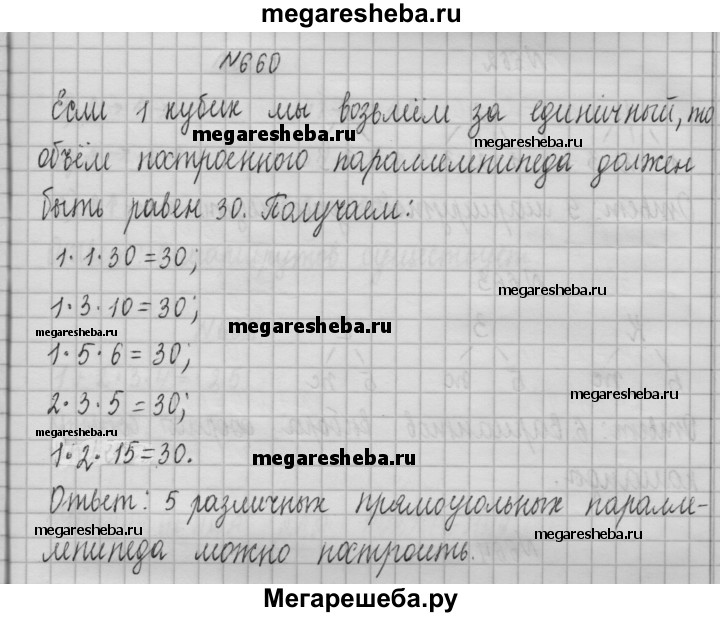 megaresheba.ru
№660
Если 1 кубик мы возьмём за единичный, то
megaresheba.ru
megaresheba.ru
объём построенного параллелепипеда должен
быть равен 30. Получаем:
1·1·30=30;
megaresheba.ru
1·3·10=30;
megaresheba.ru
megaresheba.ru
1·5·6=30;
megaresheba.ru
2·3·5=30;
megaresheba.ru
1·2·15=30.
megaresheba.ru
Ответ: 5 различных прямоугольных паралле-
megaresheba.ru
megaresheba.ru
лепипеда можно построить.
Мегарешеба.ру